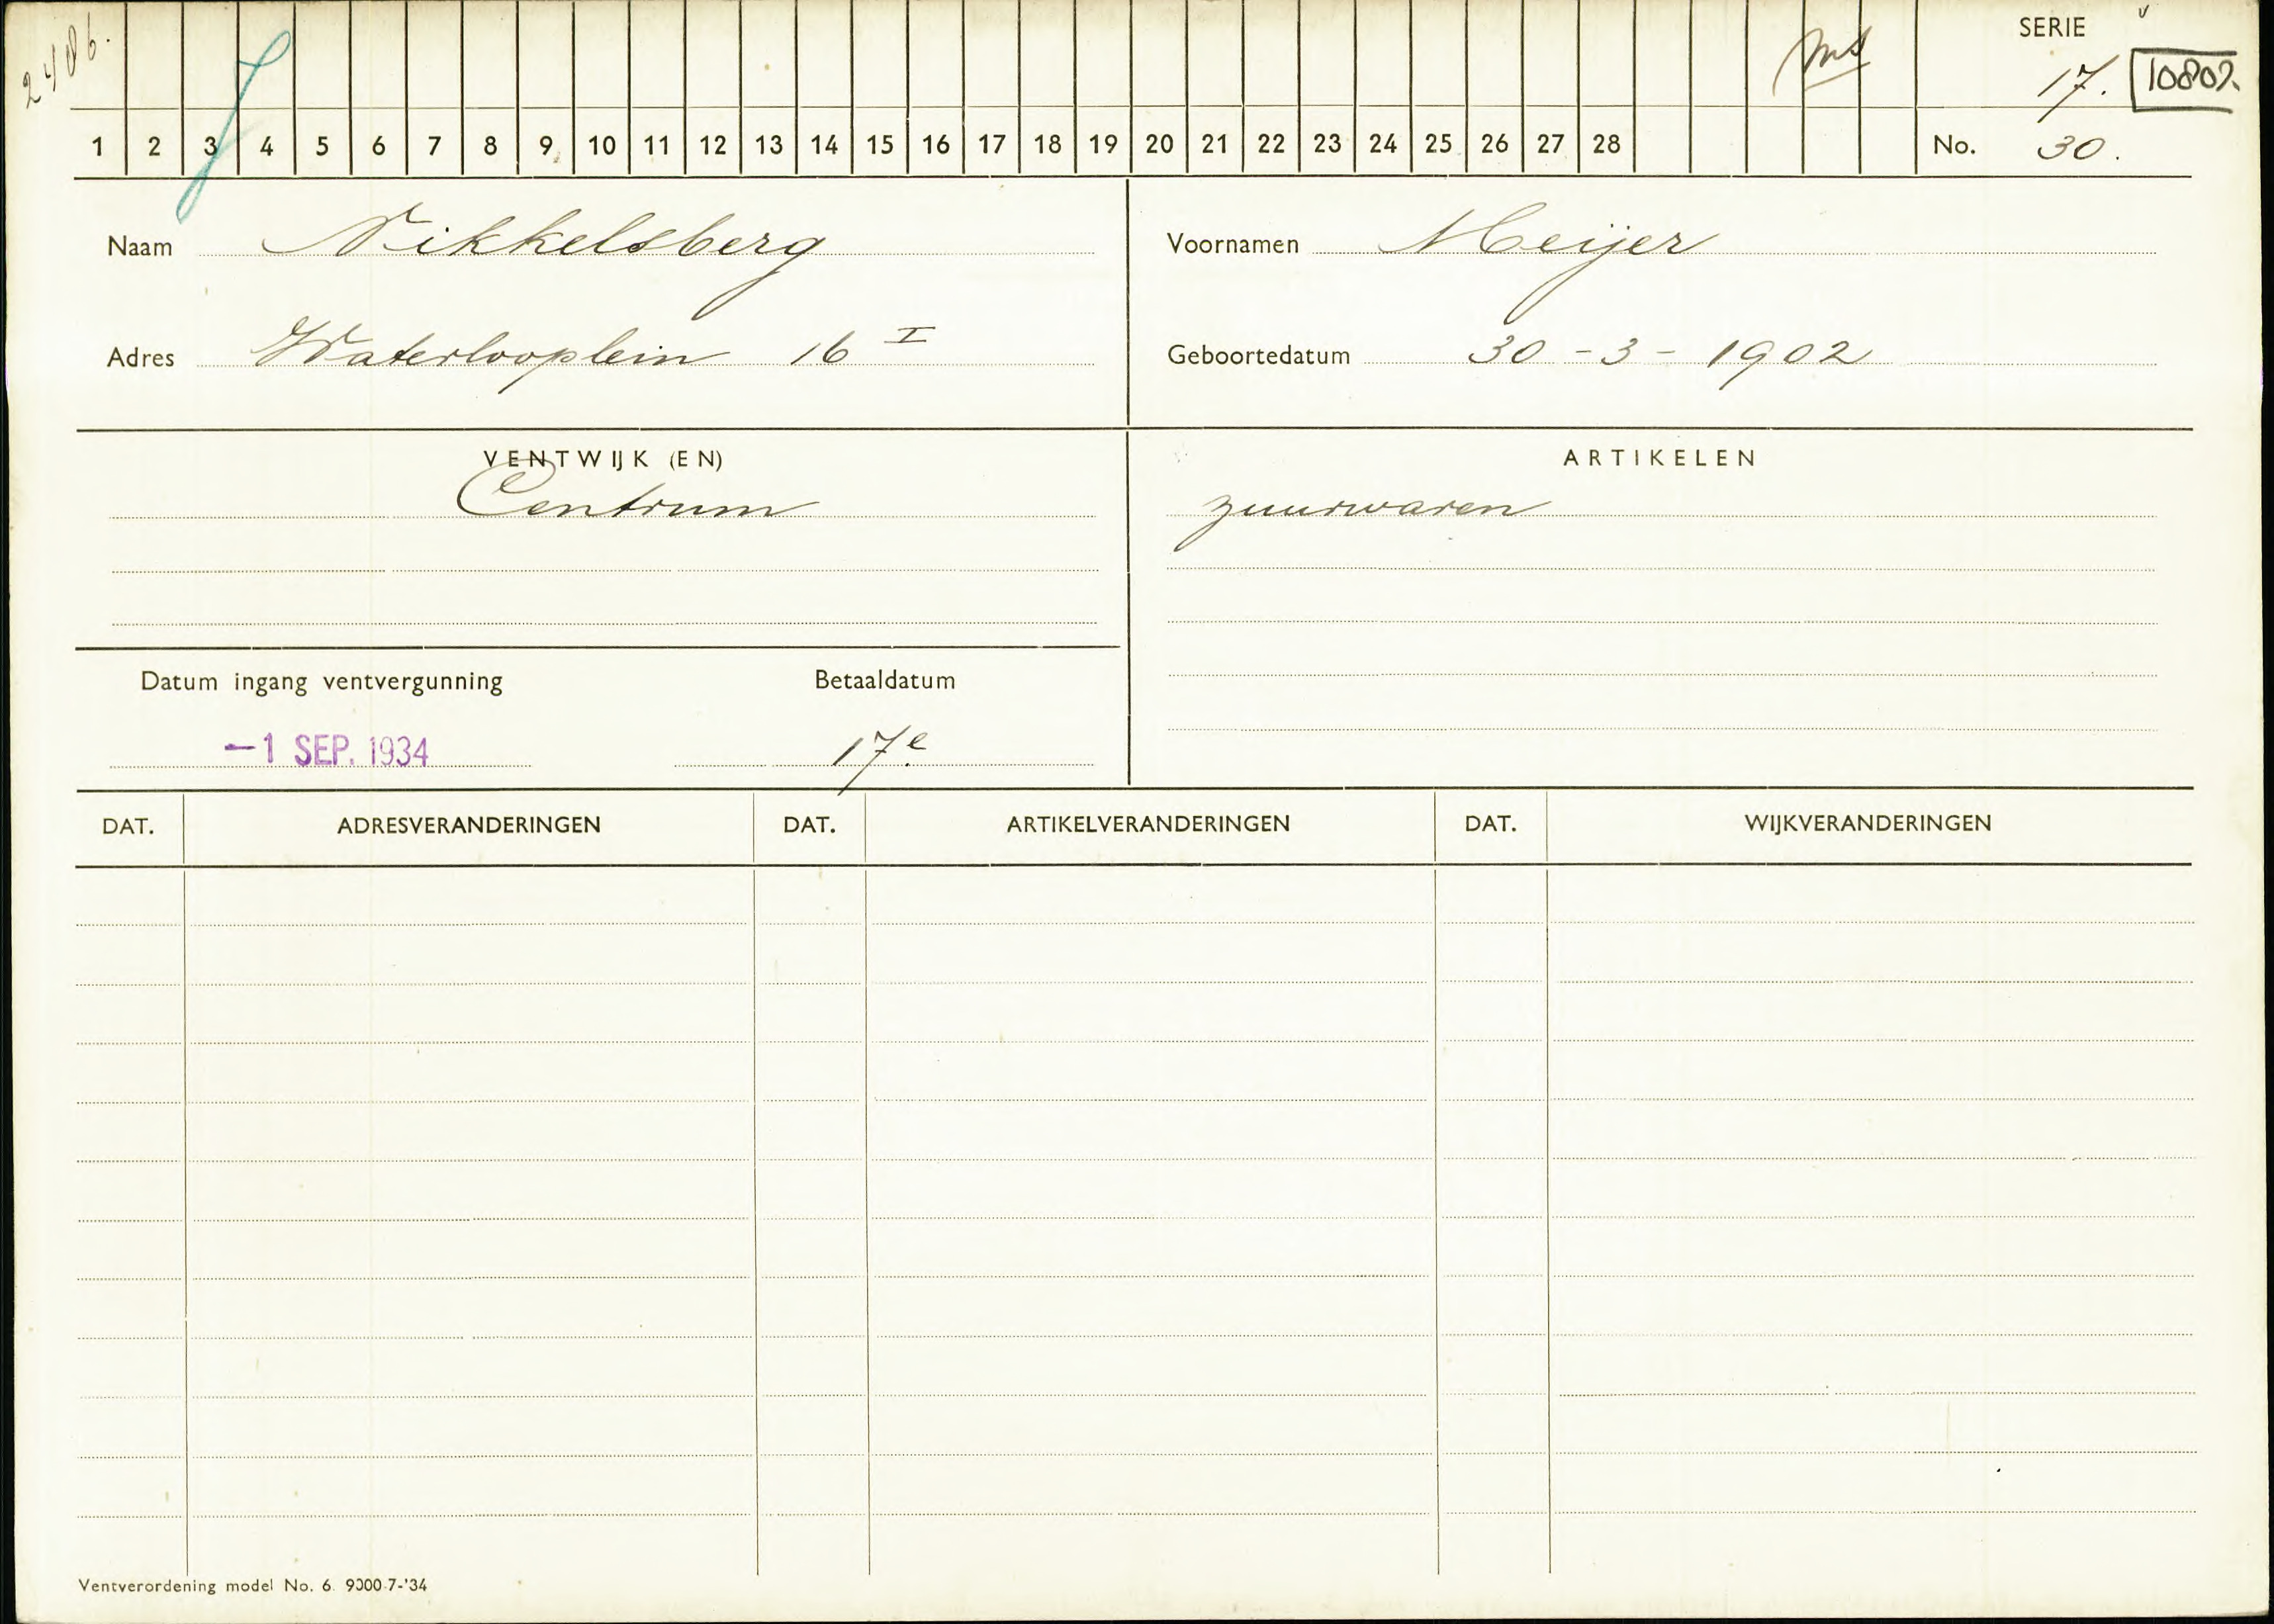 2486.
ms
SERIE
17.
10807.
1 2 3 4 5 6 7 8 9 10 11 12 13 14 15 16 17 18 19 20 21 22 23 24 25 26 27 28 No. 30.
Naam Nikkelsberg Voornamen Meijer
Adres Waterlooplein 16 I Geboortedatum 30-3-1902
VENTWIJK (EN) ARTIKELEN
Centrum zuurwaren
Datum ingang ventvergunning Betaaldatum
-1 SEP. 1934 17e
DAT. ADRESVERANDERINGEN DAT. ARTIKELVERANDERINGEN DAT. WIJKVERANDERINGEN
Ventverordening model No. 6 9000-7-'34